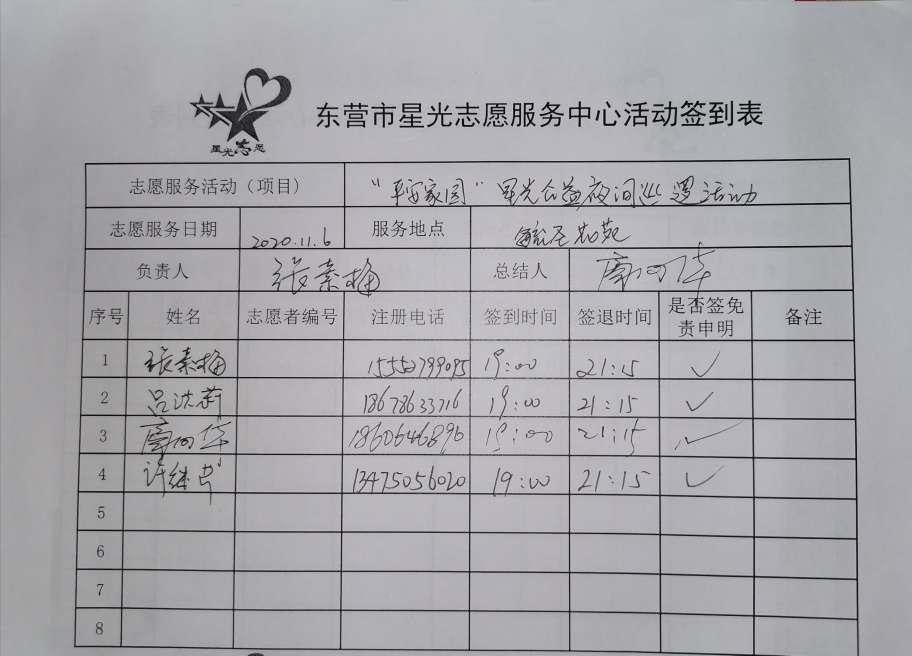 星光志愿
东营市星光志愿服务中心活动签到表
志愿服务活动（项目） “平安家园”星光公益夜间巡逻活动
志愿服务日期 2020.11.6 服务地点
负责人 张素梅 总结人
序号 姓名 志愿者编号 注册电话 签到时间 签退时间 是否签免责申明 备注
1 张素梅 15552799095 19:00 21:15 ✓
2 吕洪莉 18678633716 19:00 21:15 ✓
3 18606466896 19:00 21:15 ✓
4 许继芳 13475056020 19:00 21:15 ✓
5
6
7
8